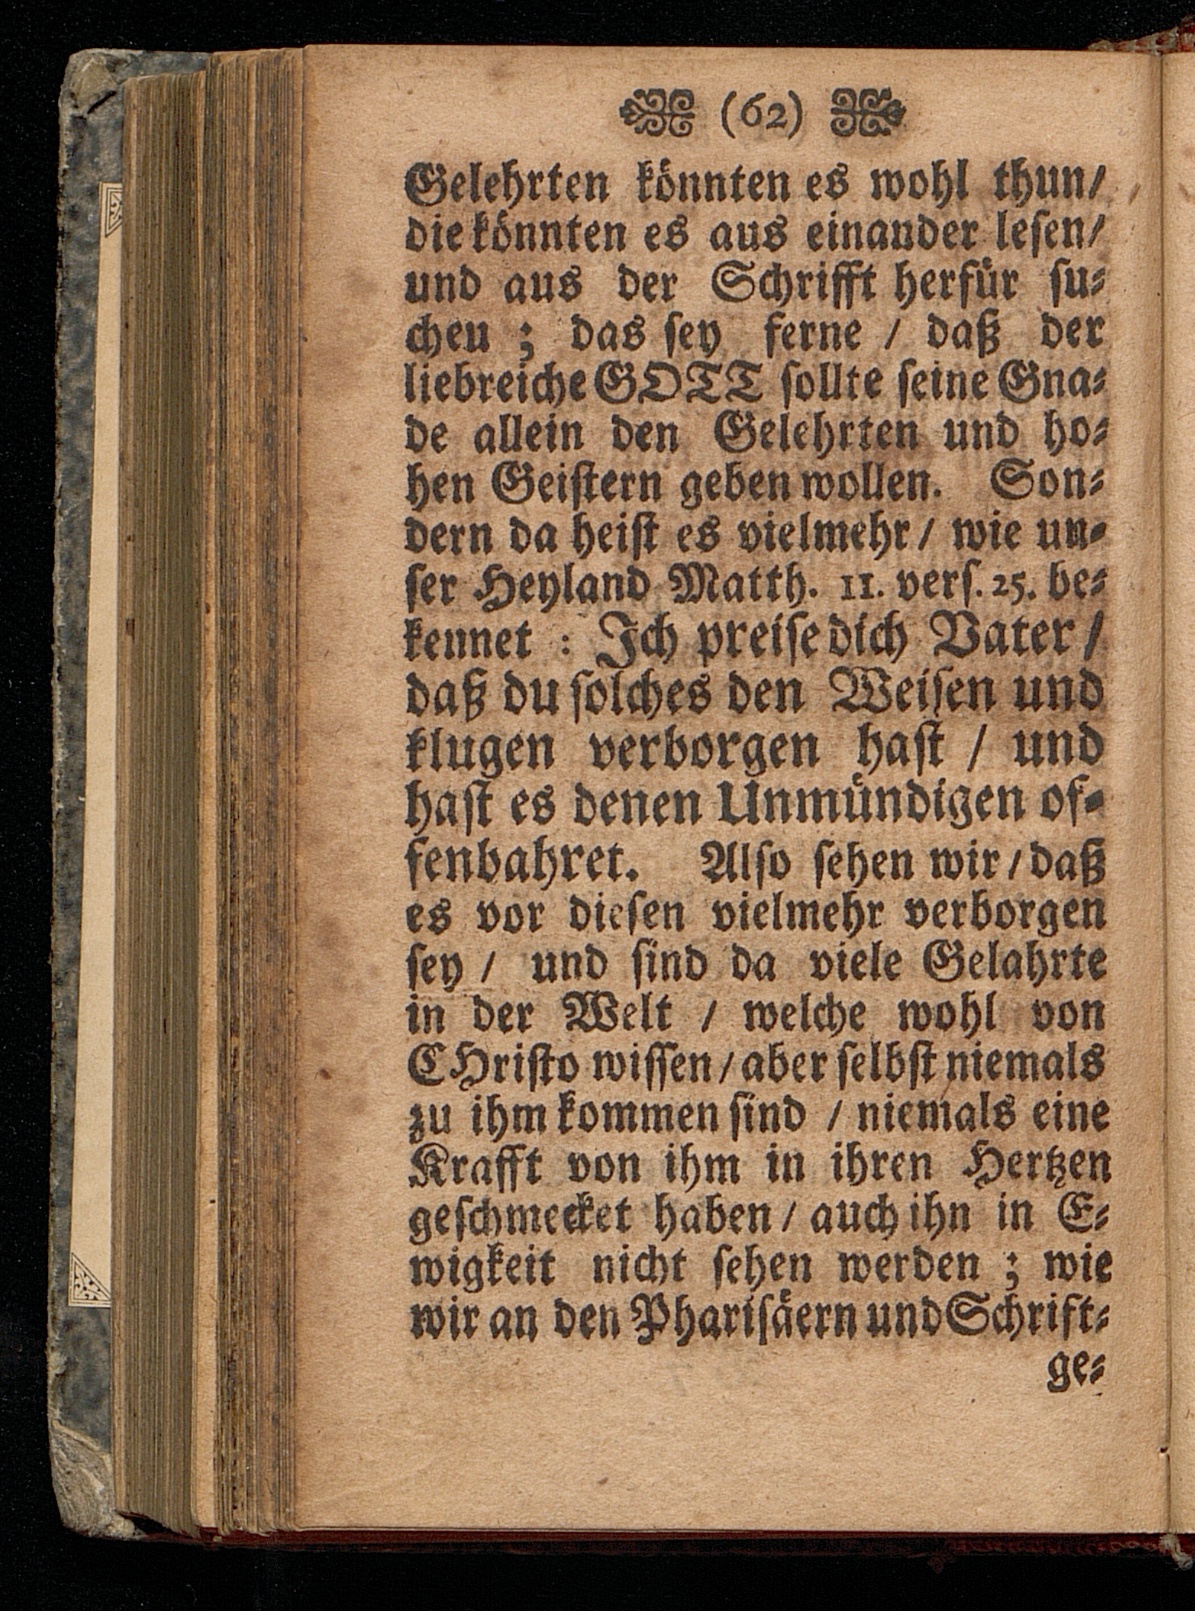 (62)
Gelehrten könnten es wohl thun/
die könnten es aus einander lesen/
und aus der Schrifft herfür su-
chen ; das sey ferne / daß der
liebreiche GOTT sollte seine Gna-
de allein den Gelehrten und ho-
hen Geistern geben wollen. Son-
dern da heist es vielmehr / wie un-
ser Heyland Matth. 11. vers. 25. be-
kennet : Ich preise dich Vater /
daß du solches den Weisen und
klugen verborgen hast / und
hast es denen Unmündigen of-
fenbahret. Also sehen wir / daß
es vor diesen vielmehr verborgen
sey / und sind da viele Gelahrte
in der Welt / welche wohl von
CHristo wissen / aber selbst niemals
zu ihm kommen sind / niemals eine
Krafft von ihm in ihren Hertzen
geschmecket haben / auch ihn in E-
wigkeit nicht sehen werden ; wie
wir an den Pharisäern und Schrift-
ge-